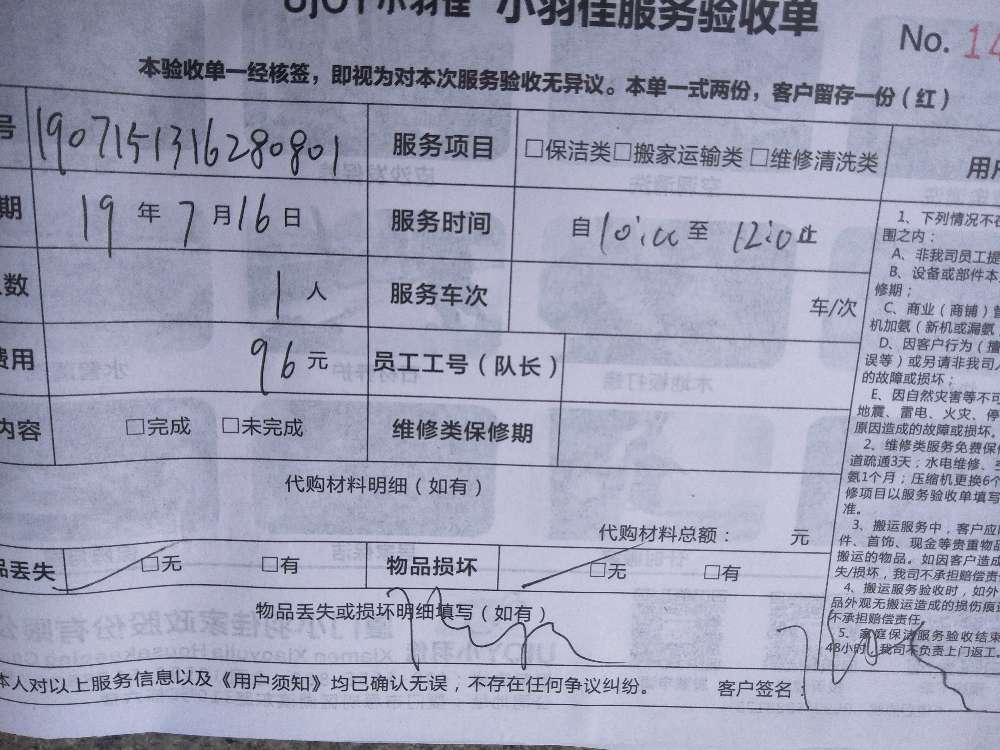 小羽佳 小羽佳服务验收单
No. 14
本验收单一经核签，即视为对本次服务验收无异议。本单一式两份，客户留存一份（红）
号 190715131628080１ 服务项目 □保洁类□搬家运输类□维修清洗类
用户
期 19 年 7 月 16 日 服务时间 自 10:00 至 12:0 止
数 1 人 服务车次 车/次
费用 96 元 员工工号（队长）
内容 □完成 □未完成 维修类保修期
代购材料明细（如有）
代购材料总额： 元
品丢失 □无 □有 物品损坏 □无 □有
物品丢失或损坏明细填写（如有）
本人对以上服务信息以及《用户须知》均已确认无误，不存在任何争议纠纷。 客户签名：
1、下列情况不在
围之内：
A、非我司员工提
B、设备或部件本
修期；
C、商业（商铺）
机加氨（新机或漏氨
D、因客户行为（擅
误等）或另请非我司人
的故障或损坏；
E、因自然灾害等不可
地震、雷电、火灾、停
原因造成的故障或损坏。
2、维修类服务免费保修
道疏通3天；水电维修、
氨1个月；压缩机更换6个
修项目以服务验收单填写
准。
3、搬运服务中，客户应
件、首饰、现金等贵重物品
搬运的物品。如因客户造成
失/损坏，我司不承担赔偿责
4、搬运服务验收时，如外
品外观无搬运造成的损伤痕
不承担赔偿责任。
5、家庭保洁服务验收结束
48小时，我司不负责上门返工。